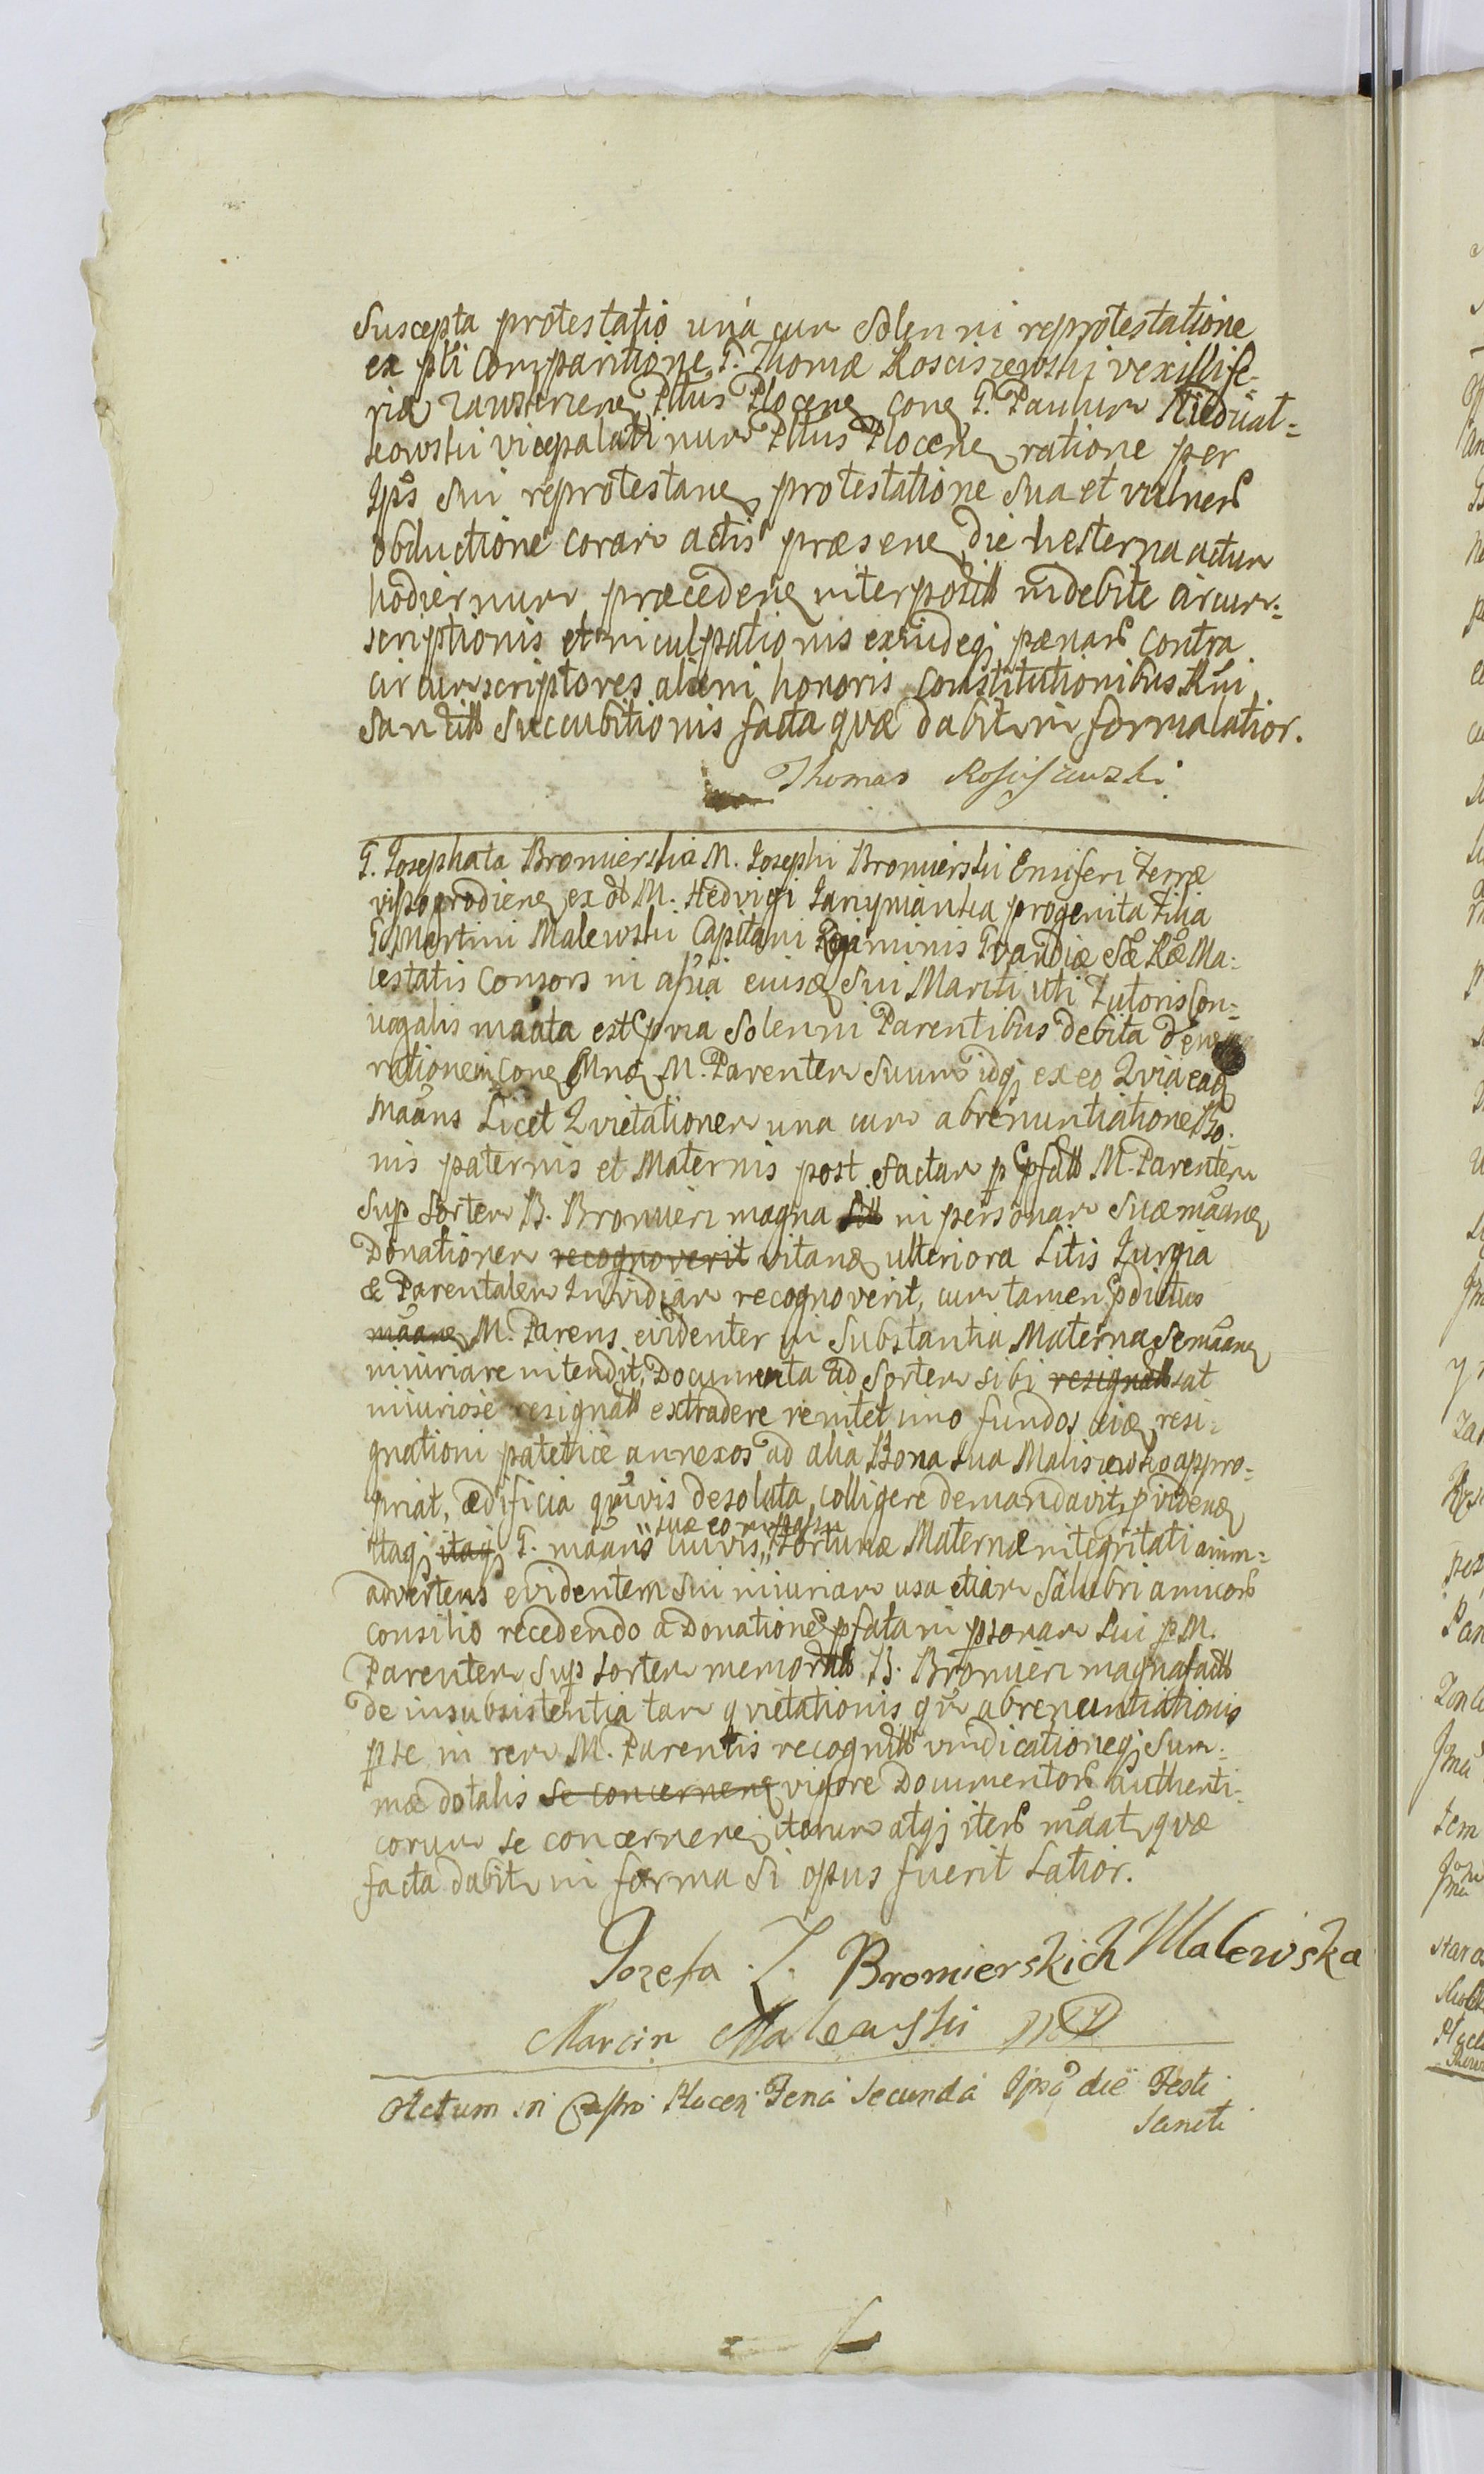 Suscepta protestatio unà cum Solenni reprotestatione
ex pti Comparitione G. Thomæ Kosciszewski vexillife-
ri Zawskrzenen Pttus Plocen con G. Paulum Niedüał-
kowski vicepalatinum Pttus Plocen ratione per
Ipsũ Sui reprotestanen protestatione Sua et vulner
obductione coram actis præsenen die hesterna actum
hodiernum præceden interposit indebite circum-
scriptionis et inculpationis exindeq pænar contra
circumscriptores alieni honoris Constitutionibus Rni
Sancit Succubitionis facta quæ dabit in forma latior.
Thomas Kosciszewski
G. Josephata Bromierska M. Josephi Bromierski Ensiferi Terræ
ex ol M. Hedvigi progenita Filia
G. Martini Malewski Capitani Regiminis Gvardiæ Sæ Ræ Ma-
iestatis Consors in assia eius Sui Mariti uti Tutoris Con-
iugalis maata est pvia Solenni Parentibus debita
rationem con Mn M. Parentem Suum idq ex eo Qvia ead
maans Licet Qvietationem una cum abrenuntiatione Bo-
nis paternis et Maternis post factam p pfat M. Parentem
Sup Sortem B. Bromierz magna in personam Suæ maan
Donationem recognoverit vitand ulteriora Litis Jurgia
& Parentalem Invidiam recognoverit, cum tamen pdictus
maane M. Parens evidenter in Substantia Materna Se maan
iniuriare intendit, Documenta ad Sortem sibi resignat sat
iniuriose resignat extradere renitet imo fundos eid resi-
gnationi patetiæ annexos ad alia Bona Sua Maliszewko appro-
priat, ædificia qmvis desolata colligere demandavit, pvidend
itaq itaq G. maans cuivis suæ eo in passu Fortunæ Maternæ integritati anim-
advertens evidentem Sui iniuriam usa etiam Salubri amicor
consilio recedendo a Donatione pfata in psonam Sui p M.
Parentem Sup Sortem memorat B. Bromierz magna fact
de insubsistentia tam qvietationis qm abrenuntiationis
p se in rem M. Parentis recognit vindicationeq Sum-
mæ dotalis se concernen vigore Documentor authenti-
corum se concernen iterum atq iter maat quæ
facta dabit in forma Si opus fuerit Latior.
Jozefa Z Bromierskich Malewska
Marcin Malewski mp
Actum in Castro Plocen Feria Secunda Ipsa die Festi
Sancti